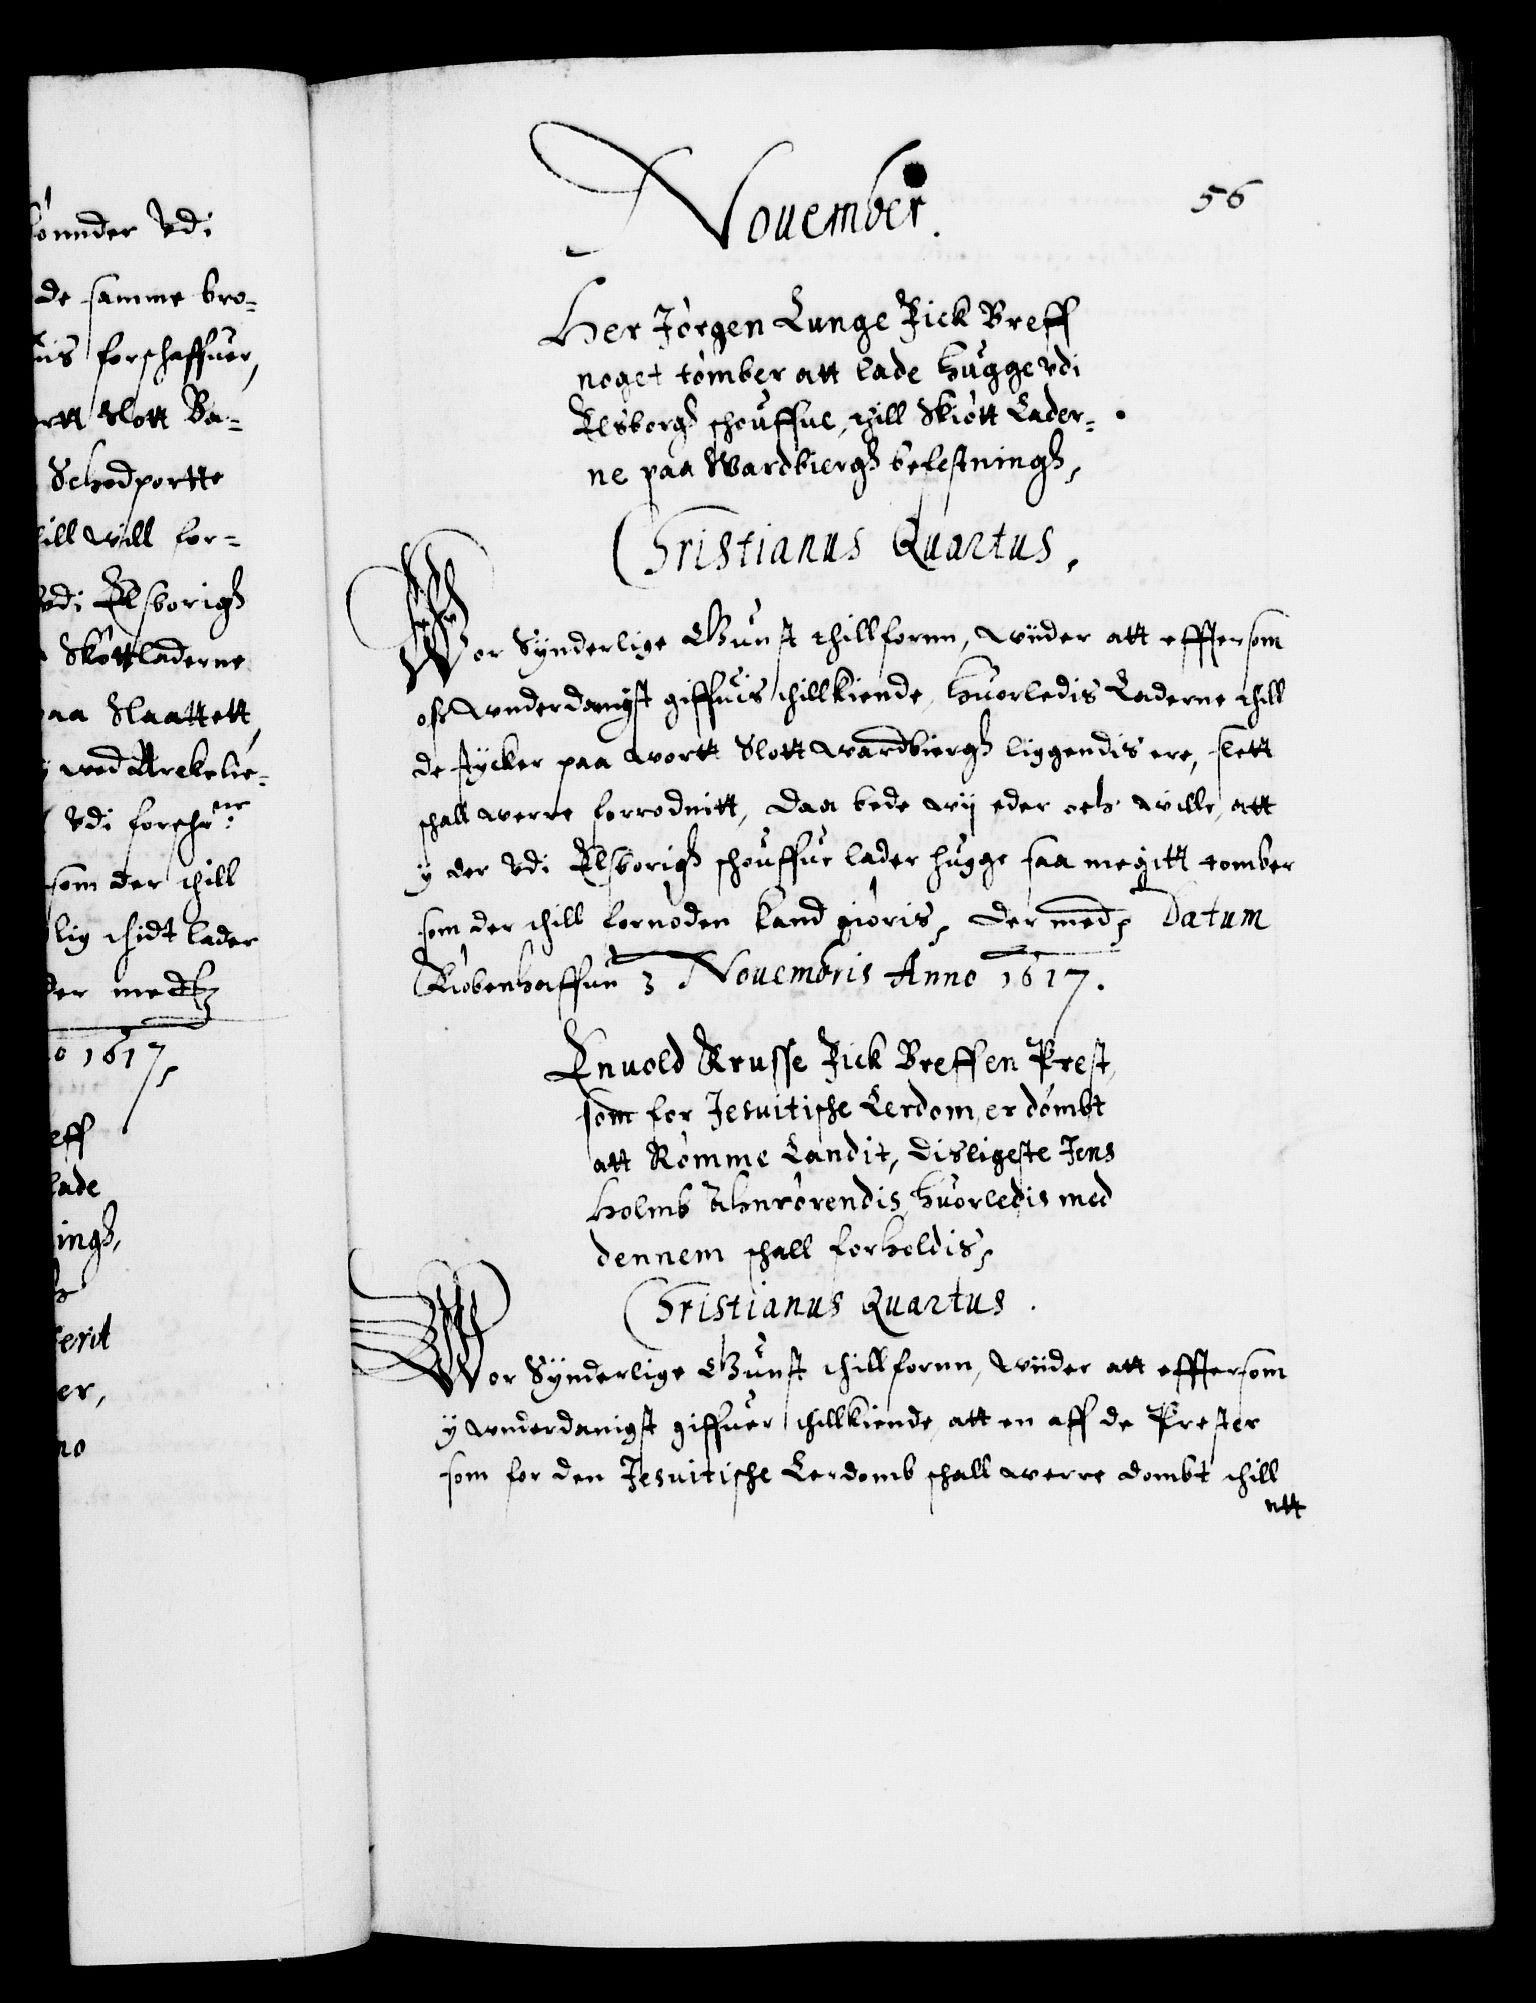 ønnder Vdi
de samme bro-
uis forschaffuer,
ortt Slott Ba-
Schodportte
till will for-
Vdi Elsborigh
Skøttladerne
paa Slaattett,
wed Arckelie-
Vdi forschr ne
som der thill
lig thidt lader
der medtz
o 1617,
eff
lade
ingh,
er,
no
November.
56
Her Jørgen Lunge Fick Breff
noget tømber att lade hugge vdi
Elsborgh schouffue, thill Skiøtt Lader-
ne paa Wardbiergh befestningh,
Christianus Quartus,
Wor Synderlige Gunst thillfornn, wiider att efftersom
oss wnderdanigst giffuis thillkiende, huorledis Laderne thill
de stycker paa wortt Slott wardbiergh liggendis ere, slett
schall werre forrodnitt, Daa bede wij eder och wille, att
y der Vdi Elsborigh schouffue lader hugge saa megitt tomber
som der thill fornøden kand giøris, Der medz Datum
Kiøbenhaffun 3 Nouembris Anno 1617.
Enuold Krusse Fick Breff en Prest,
som for Jesuitische Lerdom, er dømbt
att Rømme Landit, Disligeste Jens
Holmb Ahnrørendis, huorledis med
dennem schall forholdis,
Christianus Quartus.
Wor Synderlige Gunst thillfornn, wiider att efftersom
y wnderdanigst giffuer thillkiende, att en aff de Prester
som for den Jesuitische Lerdomb schall werre dombt thill
att